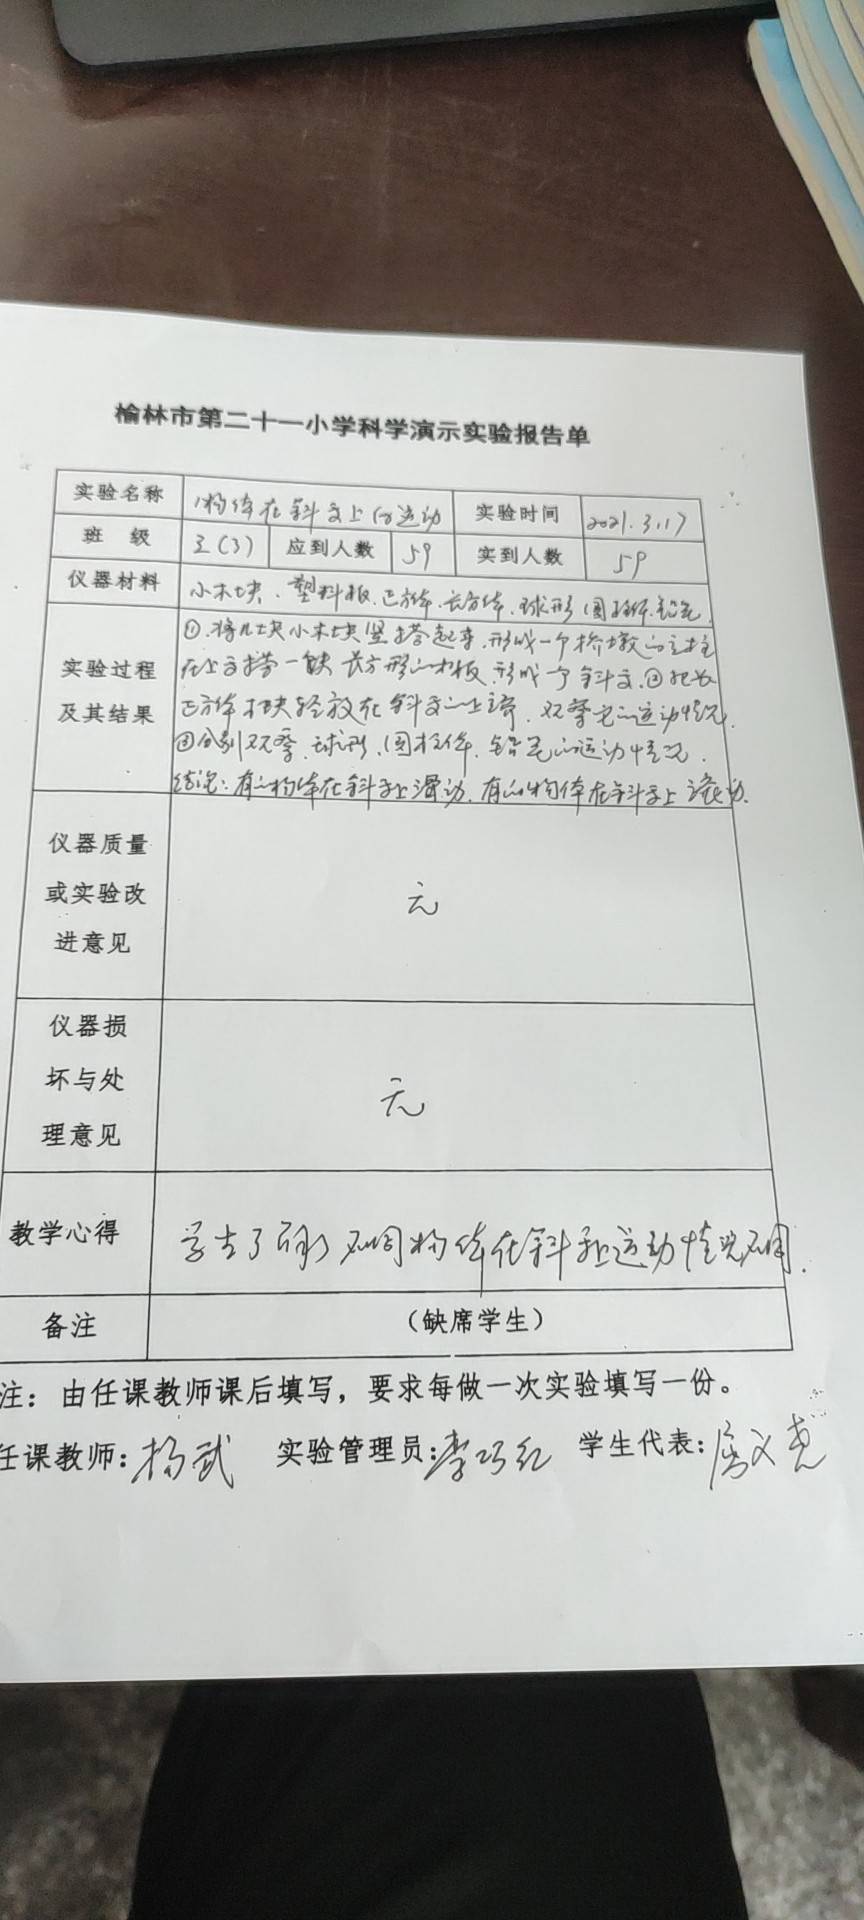 榆林市第二十一小学科学演示实验报告单
实验名称 物体在斜面上的运动 实验时间 2021.3.17
班 级 三(3) 应到人数 59 实到人数 59
仪器材料 小木块、塑料板、正方体、长方体、球形、圆柱体、铅笔
实验过程
及其结果
①、将几块小木块竖搭起来,形成一个桥墩的主柱
在上方搭一块长方形的木板,形成一个斜面.②把长
正方体木块轻放在斜面的上端,观察它的运动情况.
③分别观察、球形、圆柱体、铅笔的运动情况.
结论:有的物体在斜面上滑动,有的物体在斜面上滚动.
仪器质量
或实验改
进意见
无
仪器损
坏与处
理意见
无
教学心得 不同物体在斜面上运动情况不同.
备注 (缺席学生)
注:由任课教师课后填写,要求每做一次实验填写一份。
任课教师:杨武 实验管理员:李巧红 学生代表: